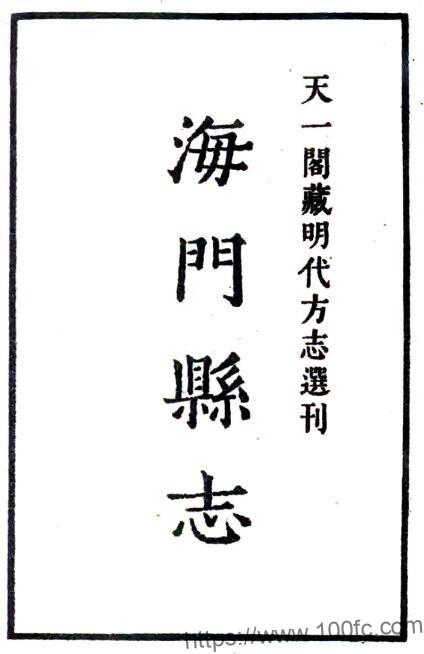 天一閣藏明代方志選刊
海門縣志
https://www.100fc.com